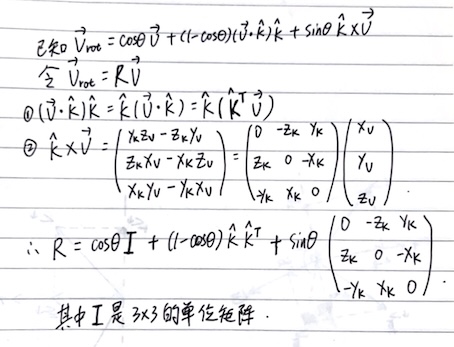 已知 v⃗rot = cosθ v⃗ + (1-cosθ)(v⃗·k̂)k̂ + sinθ k̂×v⃗
令 v⃗rot = Rv⃗
① (v⃗·k̂)k̂ = k̂(v⃗·k̂) = k̂(k̂ᵀv⃗)
② k̂×v⃗ = (yₖzᵥ - zₖyᵥ; zₖxᵥ - xₖzᵥ; xₖyᵥ - yₖxᵥ) = (0 -zₖ yₖ; zₖ 0 -xₖ; -yₖ xₖ 0)(xᵥ; yᵥ; zᵥ).
∴ R = cosθ I + (1-cosθ) k̂k̂ᵀ + sinθ (0 -zₖ yₖ; zₖ 0 -xₖ; -yₖ xₖ 0)
其中 I 是 3×3 的单位矩阵.